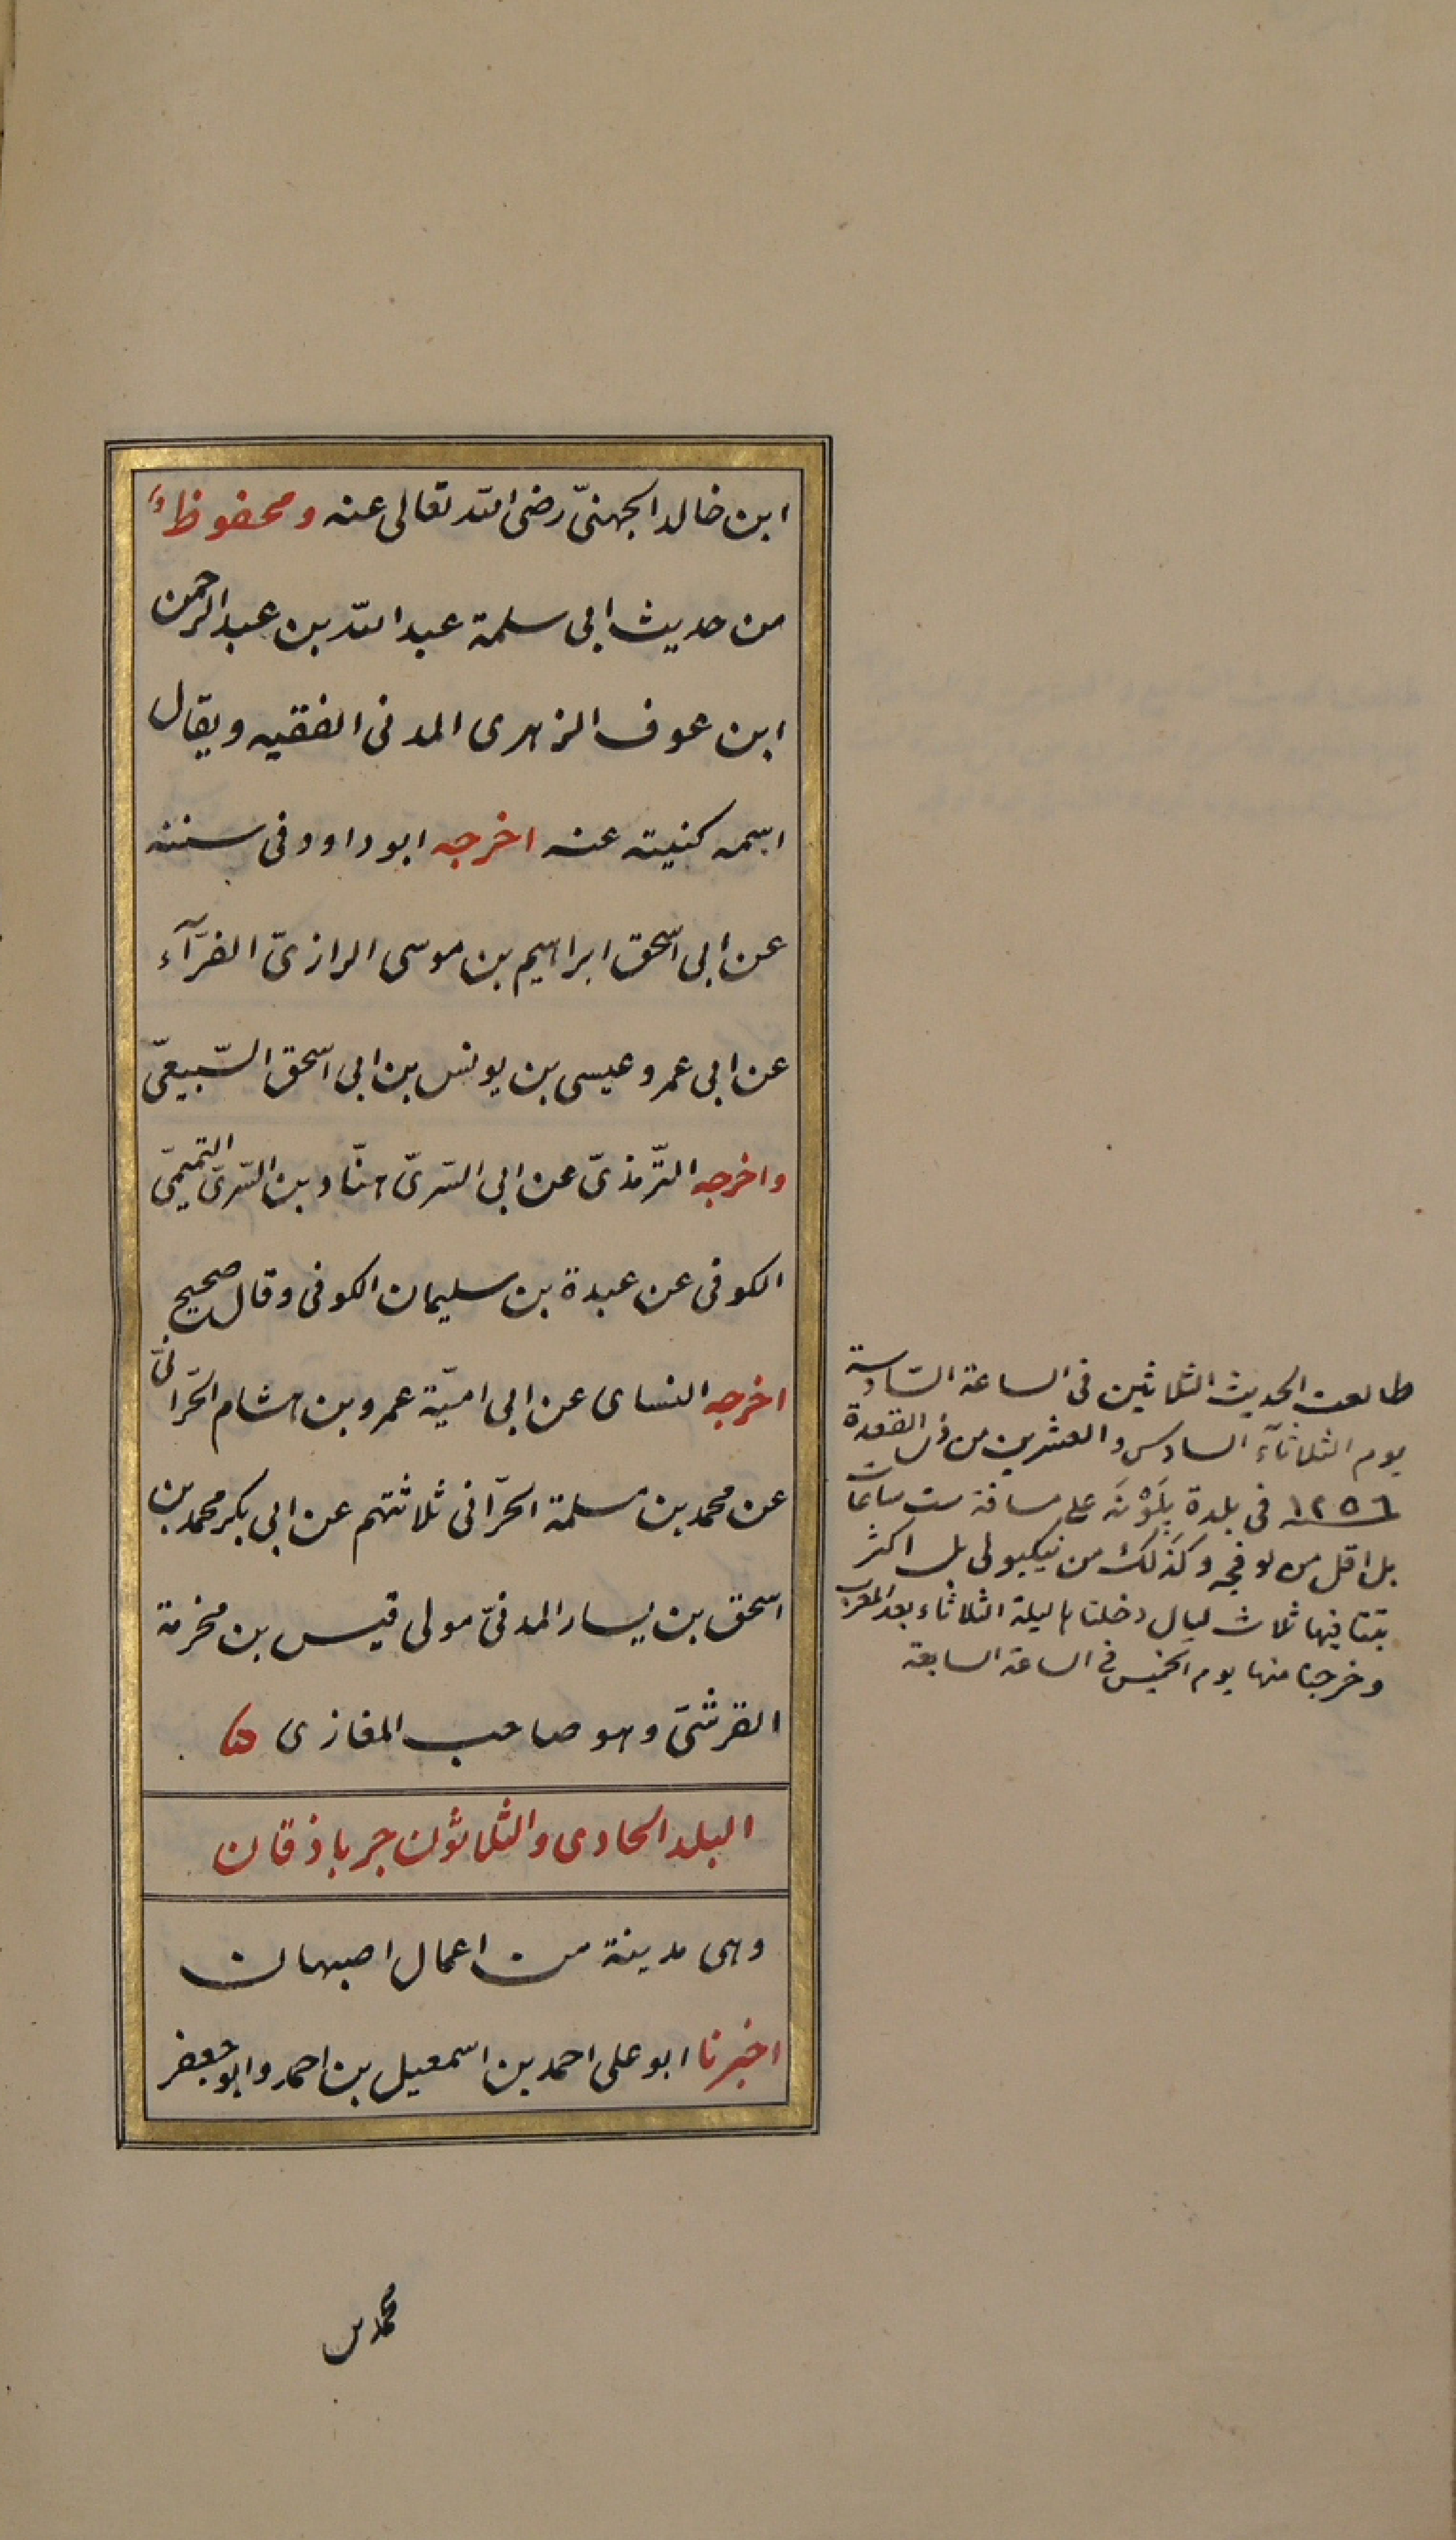 ابن خالد الجهنیّ رضی الله تعالی عنه ومحفوظٌ
من حدیث ابی سلمة عبد الله بن عبد الرحمن
ابن عوف الزهری المدنی الفقیه ویقال
اسمه کنیته عنه اخرجه ابو داود فی سننه
عن ابی اسحق ابراهیم بن موسی الرازیّ الفرّآء
عن ابی عمرو عیسی بن یونس بن ابی اسحق السّبیعیّ
واخرجه التّرمذیّ عن ابی السّریّ هنّاد بن السّریّ التمیمیّ
الکوفی عن عبدة بن سلیمان الکوفی وقال صحیح
اخرجه النسای عن ابی امیّة عمرو بن هشام الحرّانیّ
عن محمد بن سلمة الحرّانی ثلاثتهم عن ابی بکر محمد بن
اسحق بن یسار المدنیّ مولی قیس بن مخرمة
القرشیّ وهو صاحب المغازی
البلد الحادی والثلاثون جرباذقان
وهی مدینة من اعمال اصبهان
اخبرنا ابو علی احمد بن اسمعیل بن احمد وابو جعفر
محمد بن
طالعت الحدیث الثلاثین فی الساعة السّادسة
یوم الثلاثآء السادس والعشرین من ذی القعدة
١٢٥٦ فی بلدة پلَوْنَه علی مسافة ست ساعات
بل اقل من لوفجه وکذلک من نیکبولی بل اکثر
بتنا فیها ثلاث لیال دخلناها لیلة الثلاثاء بعد المغرب
وخرجنا منها یوم الخمیس فی الساعة السابعة